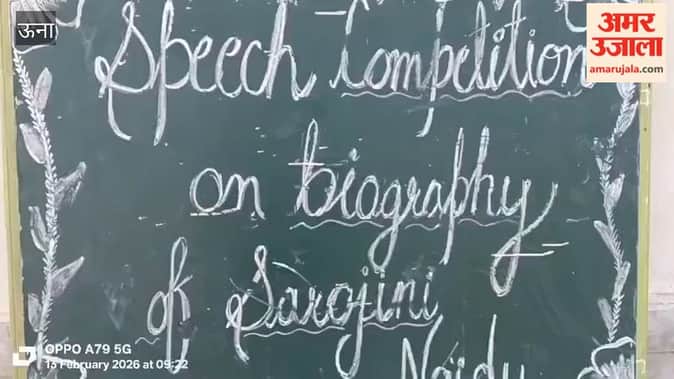 ऊना
अमर
उजाला
amarujala.com
Speech Competition
on biography
of Sarojini
Naidu
OPPO A79 5G
13 February 2026 at 09:22